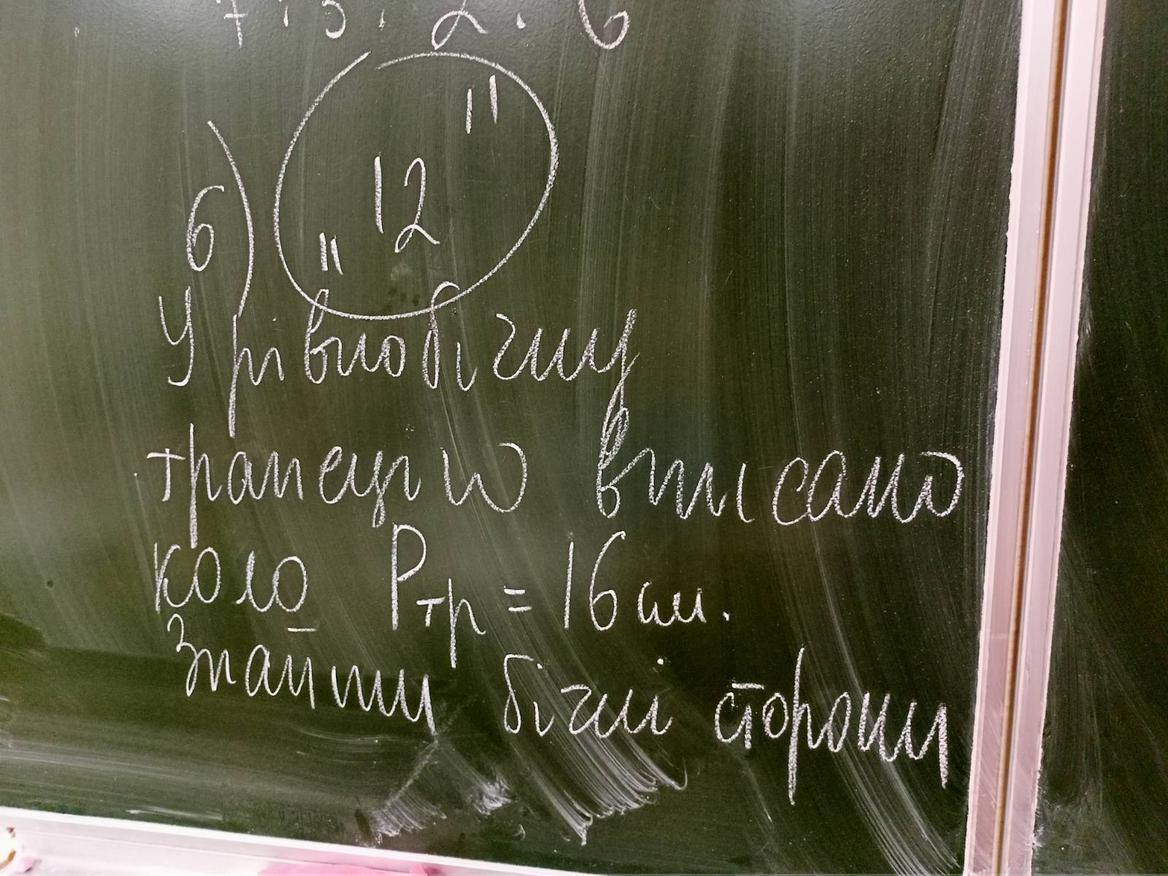 7 : 3 : 2 : 6
6) "12"
У рівнобічну
трапецію вписано
коло Pтр = 16 см.
Знайти бічні сторони